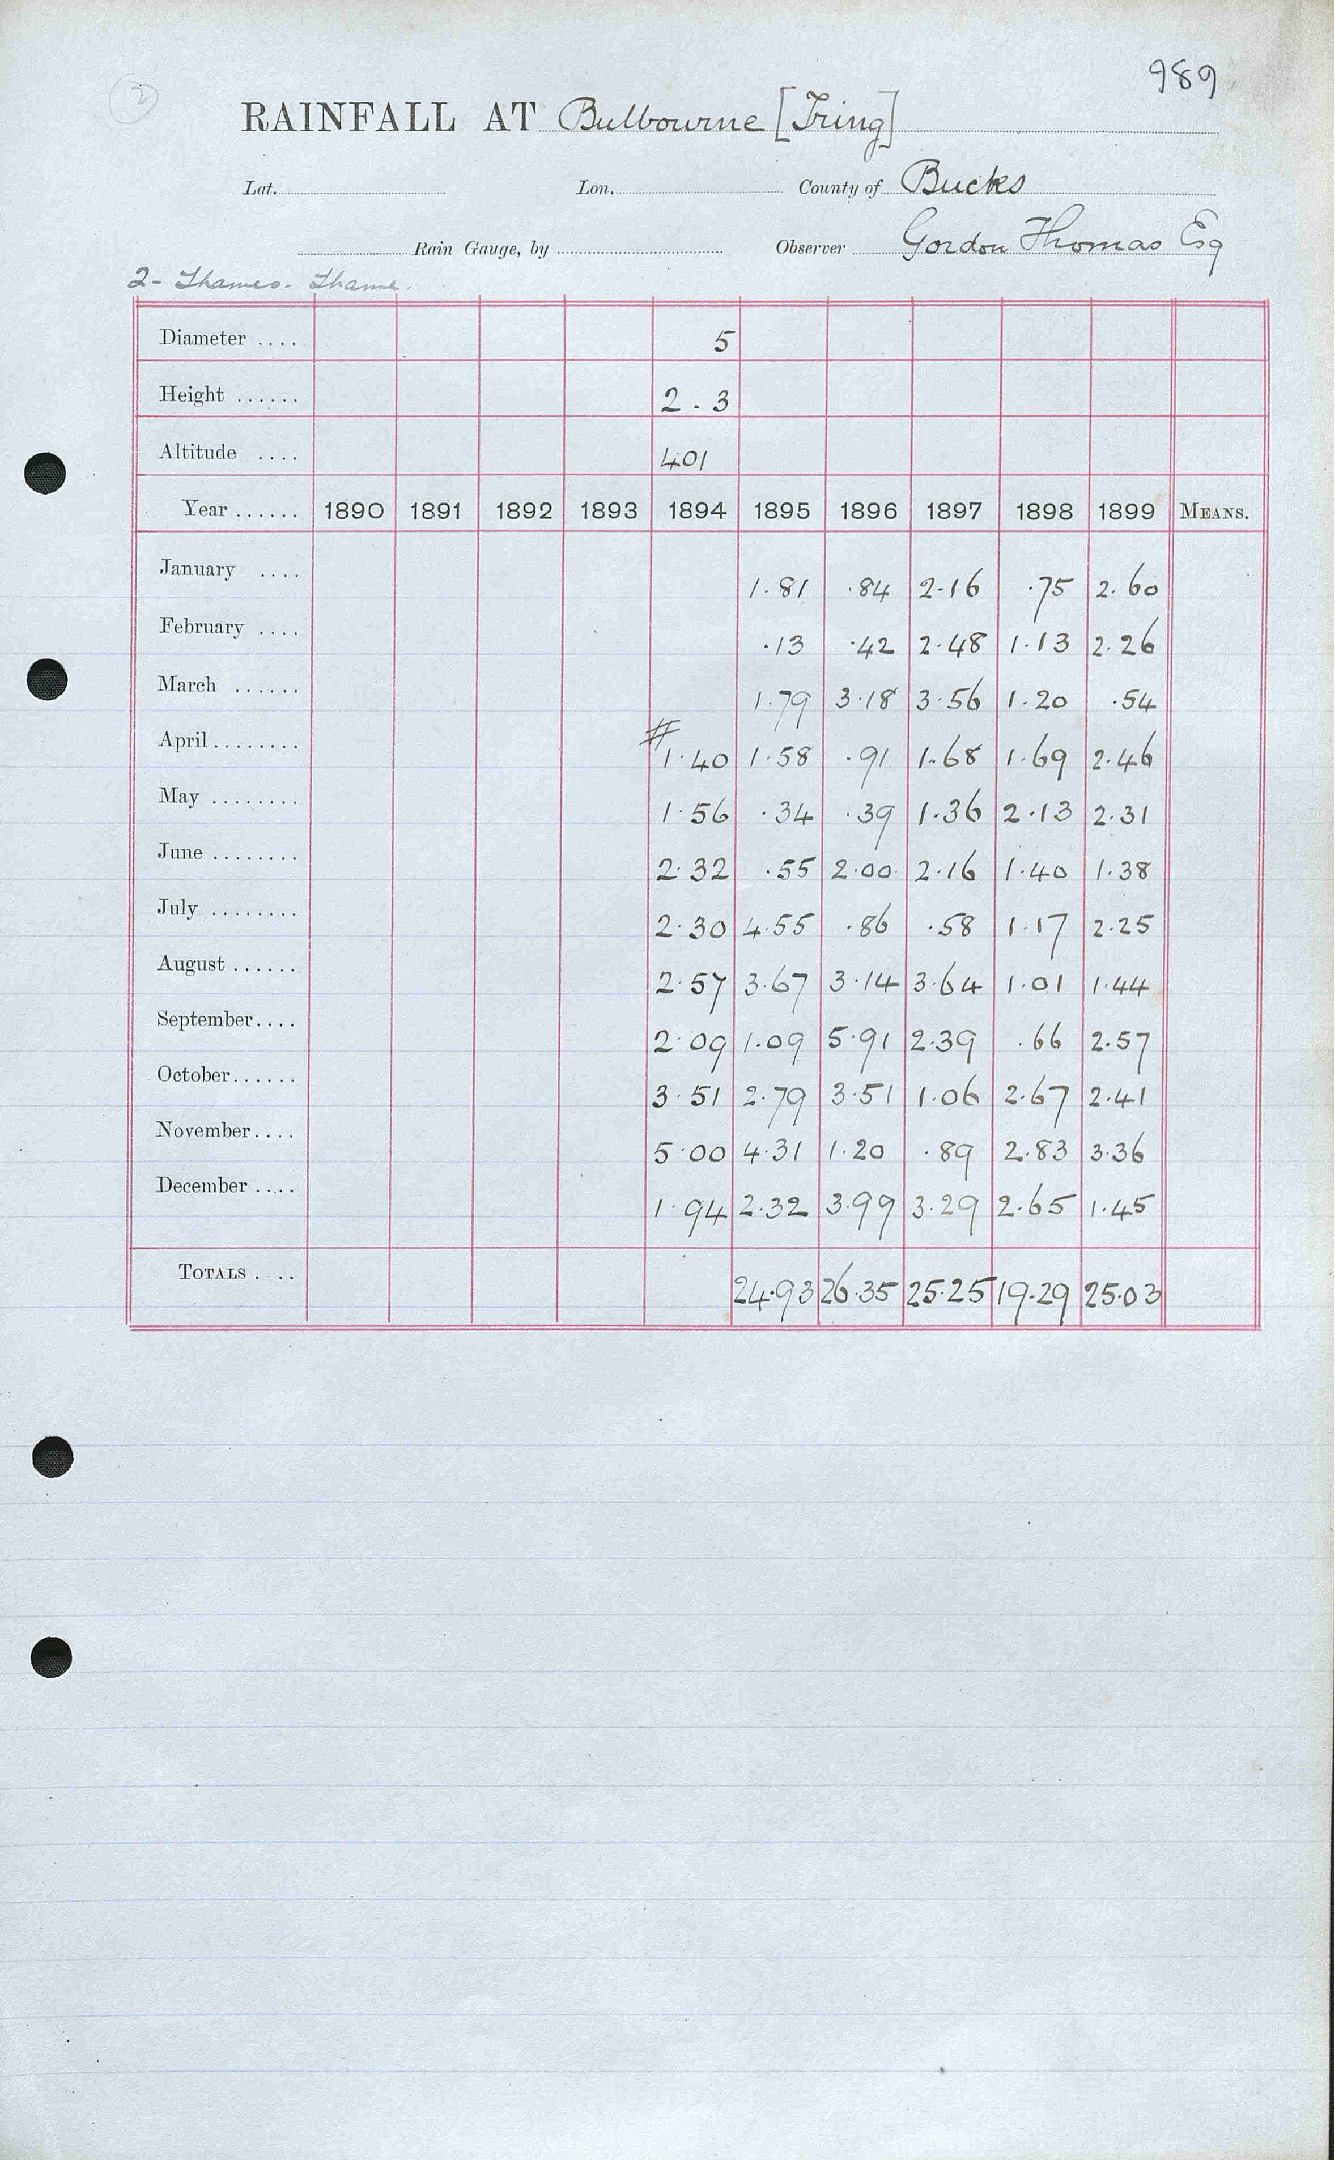 989
2
RAINFALL AT Bulbourne [Tring]
Lat. Lon. County of Bucks
Rain Gauge, by Observer Gordon Thomas Esq
2- Thames. Thame.
Diameter .... 5
Height ...... 2 . 3
Altitude .... 401
Year ...... 1890 1891 1892 1893 1894 1895 1896 1897 1898 1899 MEANS.
January .... 1.81 .84 2.16 .75 2.60
February .... .13 .42 2.48 1.13 2.26
March ...... 1.79 3.18 3.56 1.20 .54
April ........ # 1.40 1.58 .91 1.68 1.69 2.46
May ........ 1.56 .34 .39 1.36 2.13 2.31
June ........ 2.32 .55 2.00 2.16 1.40 1.38
July ........ 2.30 4.55 .86 .58 1.17 2.25
August ...... 2.57 3.67 3.14 3.64 1.01 1.44
September .... 2.09 1.09 5.91 2.39 .66 2.57
October ...... 3.51 2.79 3.51 1.06 2.67 2.41
November .... 5.00 4.31 1.20 .89 2.83 3.36
December .... 1.94 2.32 3.99 3.29 2.65 1.45
TOTALS .... 24.93 26.35 25.25 19.29 25.03